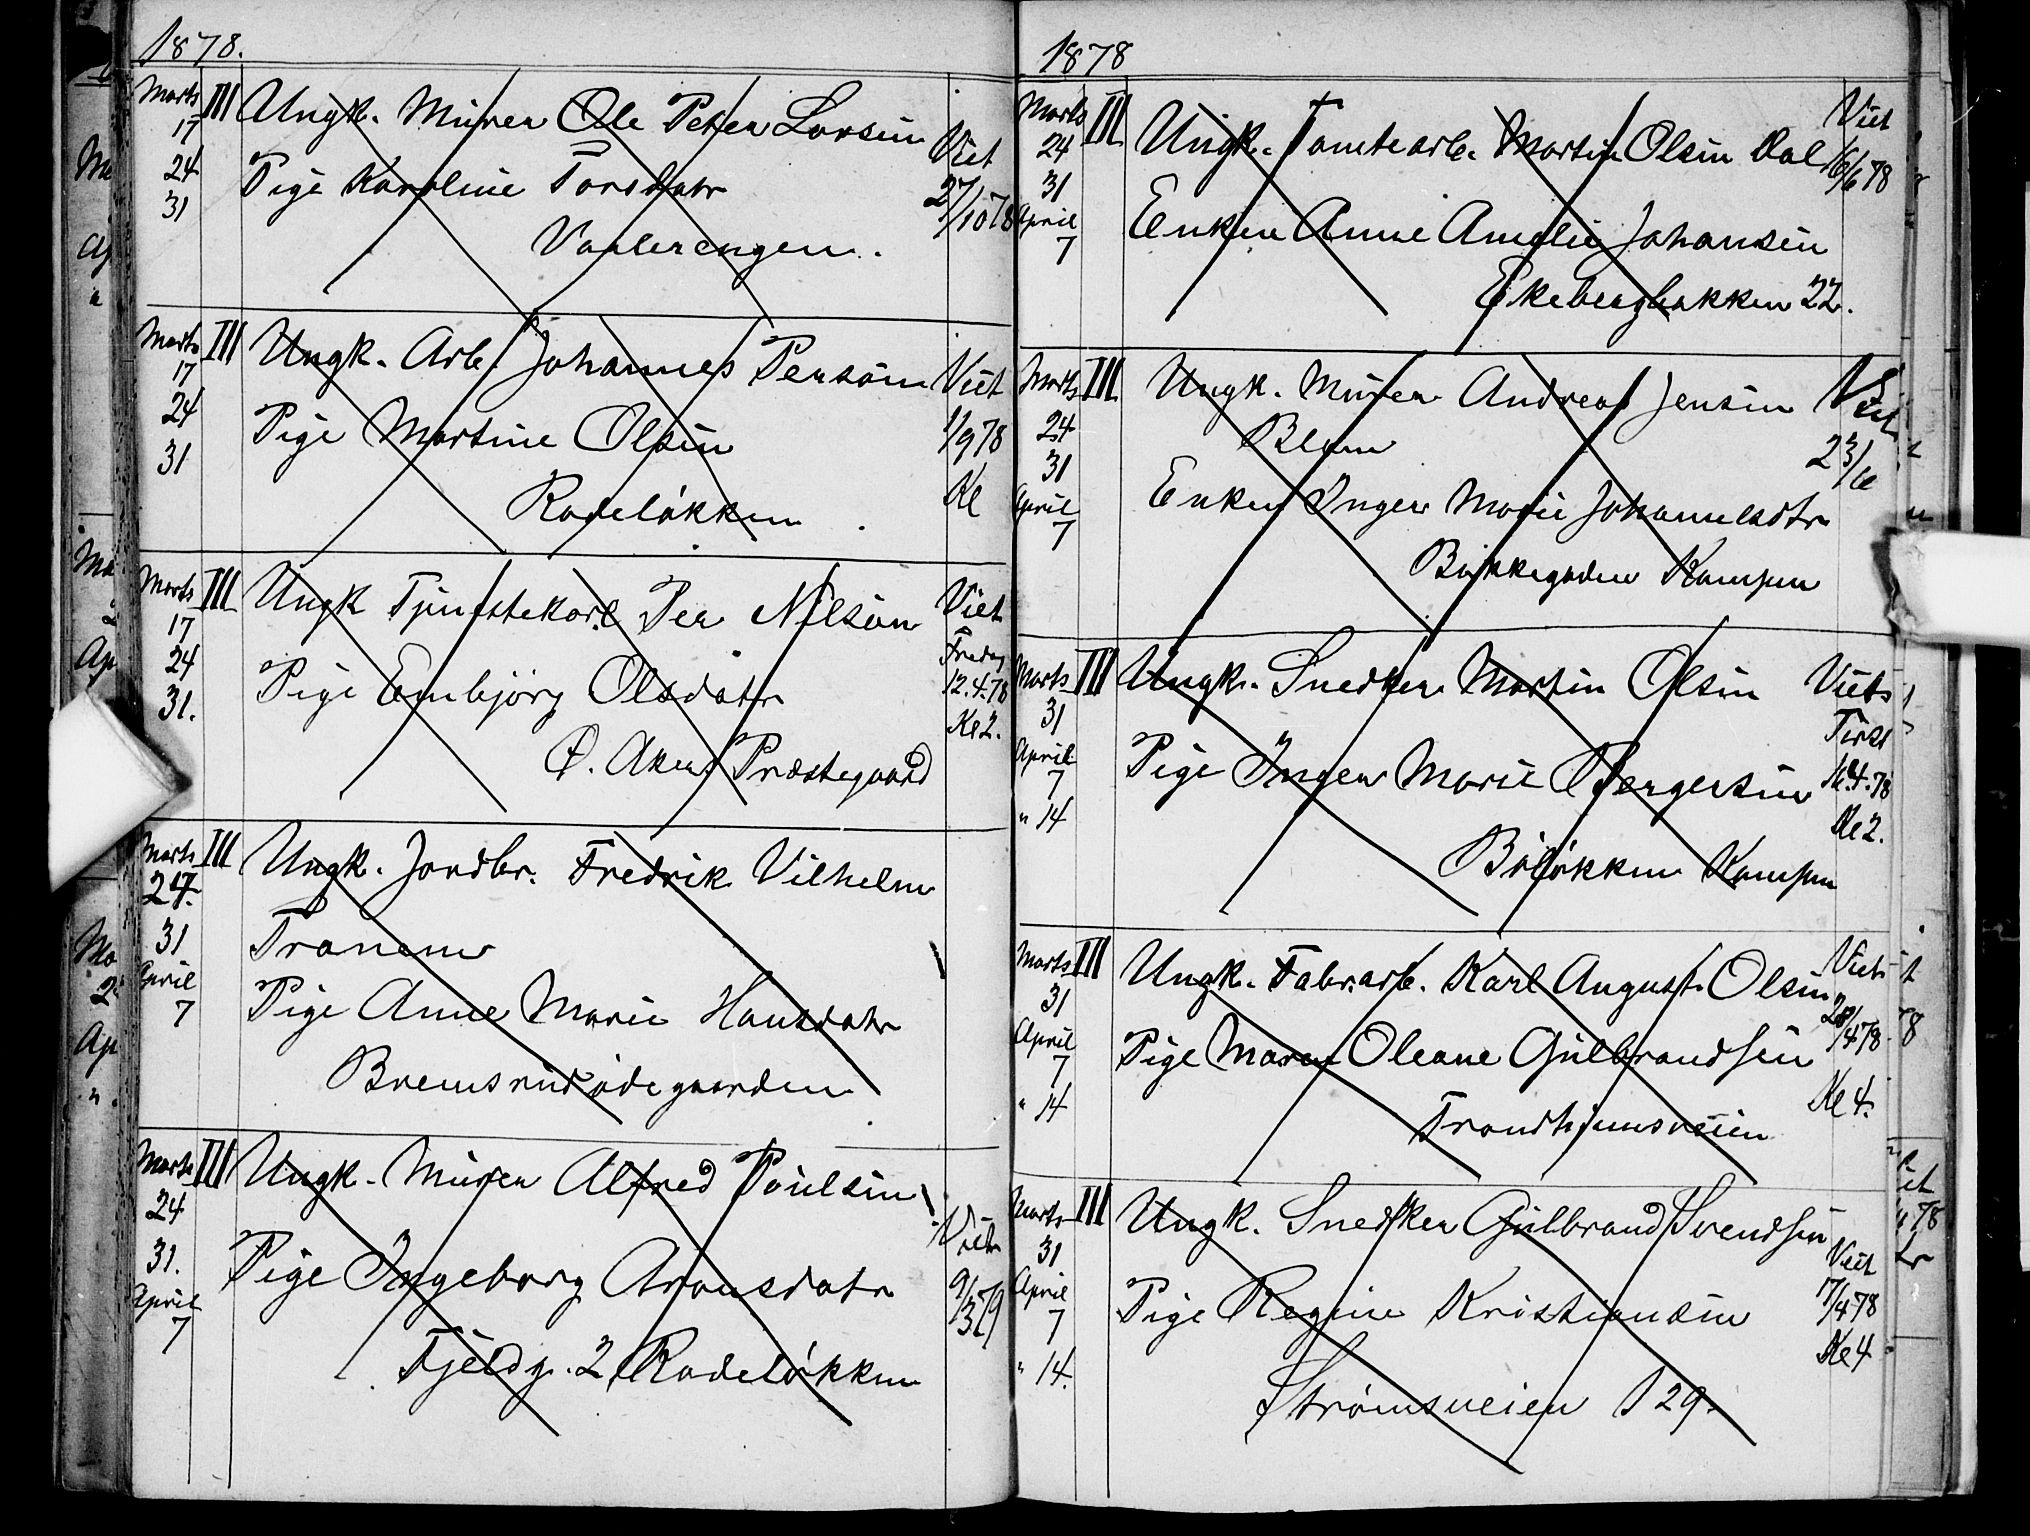 1878.
Marts 17 24 31 III
Ungk. Murer Ole Peter Larsen
Pige Karoline Torsdatr
Vaalerengen.
Viet 27/10 78
Marts 17 24 31 III
Ungk. Arb. Johannes Persøn
Pige Martine Olsen
Rodeløkken
Viet 1/9 78 Kl
Marts 17 24 31. III
Ungk Tjenestekarl Per Nilson
Pige Embjørg Olsdatr
Ø. Akers Præstegaard
Viet Fredag 12.4.78 Kl 2.
Marts 24. 31 April 7 III
Ungk. Jordbr. Fredrik Vilhelm
Tranem
Pige Anne Marie Hansdatr
Bremsrud ødegaarden
Marts 24 31. April 7 III
Ungk. Murer Alfred Poulsen
Pige Ingeborg Aronsdatr
Fjeldg. 2, Rodeløkken
Viet 9/3 79
1878
Marts 24 31 April 7 III
Ungk. Tomtearb. Martin Olsen Dal
Enken Anne Amelie Johansen
Ekebergbakken 22.
Viet 16/6 78
Marts 24 31 April 7 III
Ungk. Murer Andreas Jensen
Blom
Enken Inger Marie Johannesdtr
Bøkkegaden Kampen
Viet 23/6
Marts 31 April 7 " 14 III
Ungk. Snedker Martin Olsen
Pige Inger Marie Bergersen
Bøløkken Kampen
Viets Tirsd 16.4.78 Kl 2.
Marts 31 April 7 " 14 III
Ungk. Fabr.arb. Karl August Olsen
Pige Maren Oleane Gulbrandsen
Trondhjemsveien
Viet 28/4 78 Kl 4.
Marts 31 April 7 " 14. III
Ungk. Snedker Gulbrand Svendsen
Pige Regine Kristiansen
Strømsveien 129.
Viet 17/4 78 Kl 4